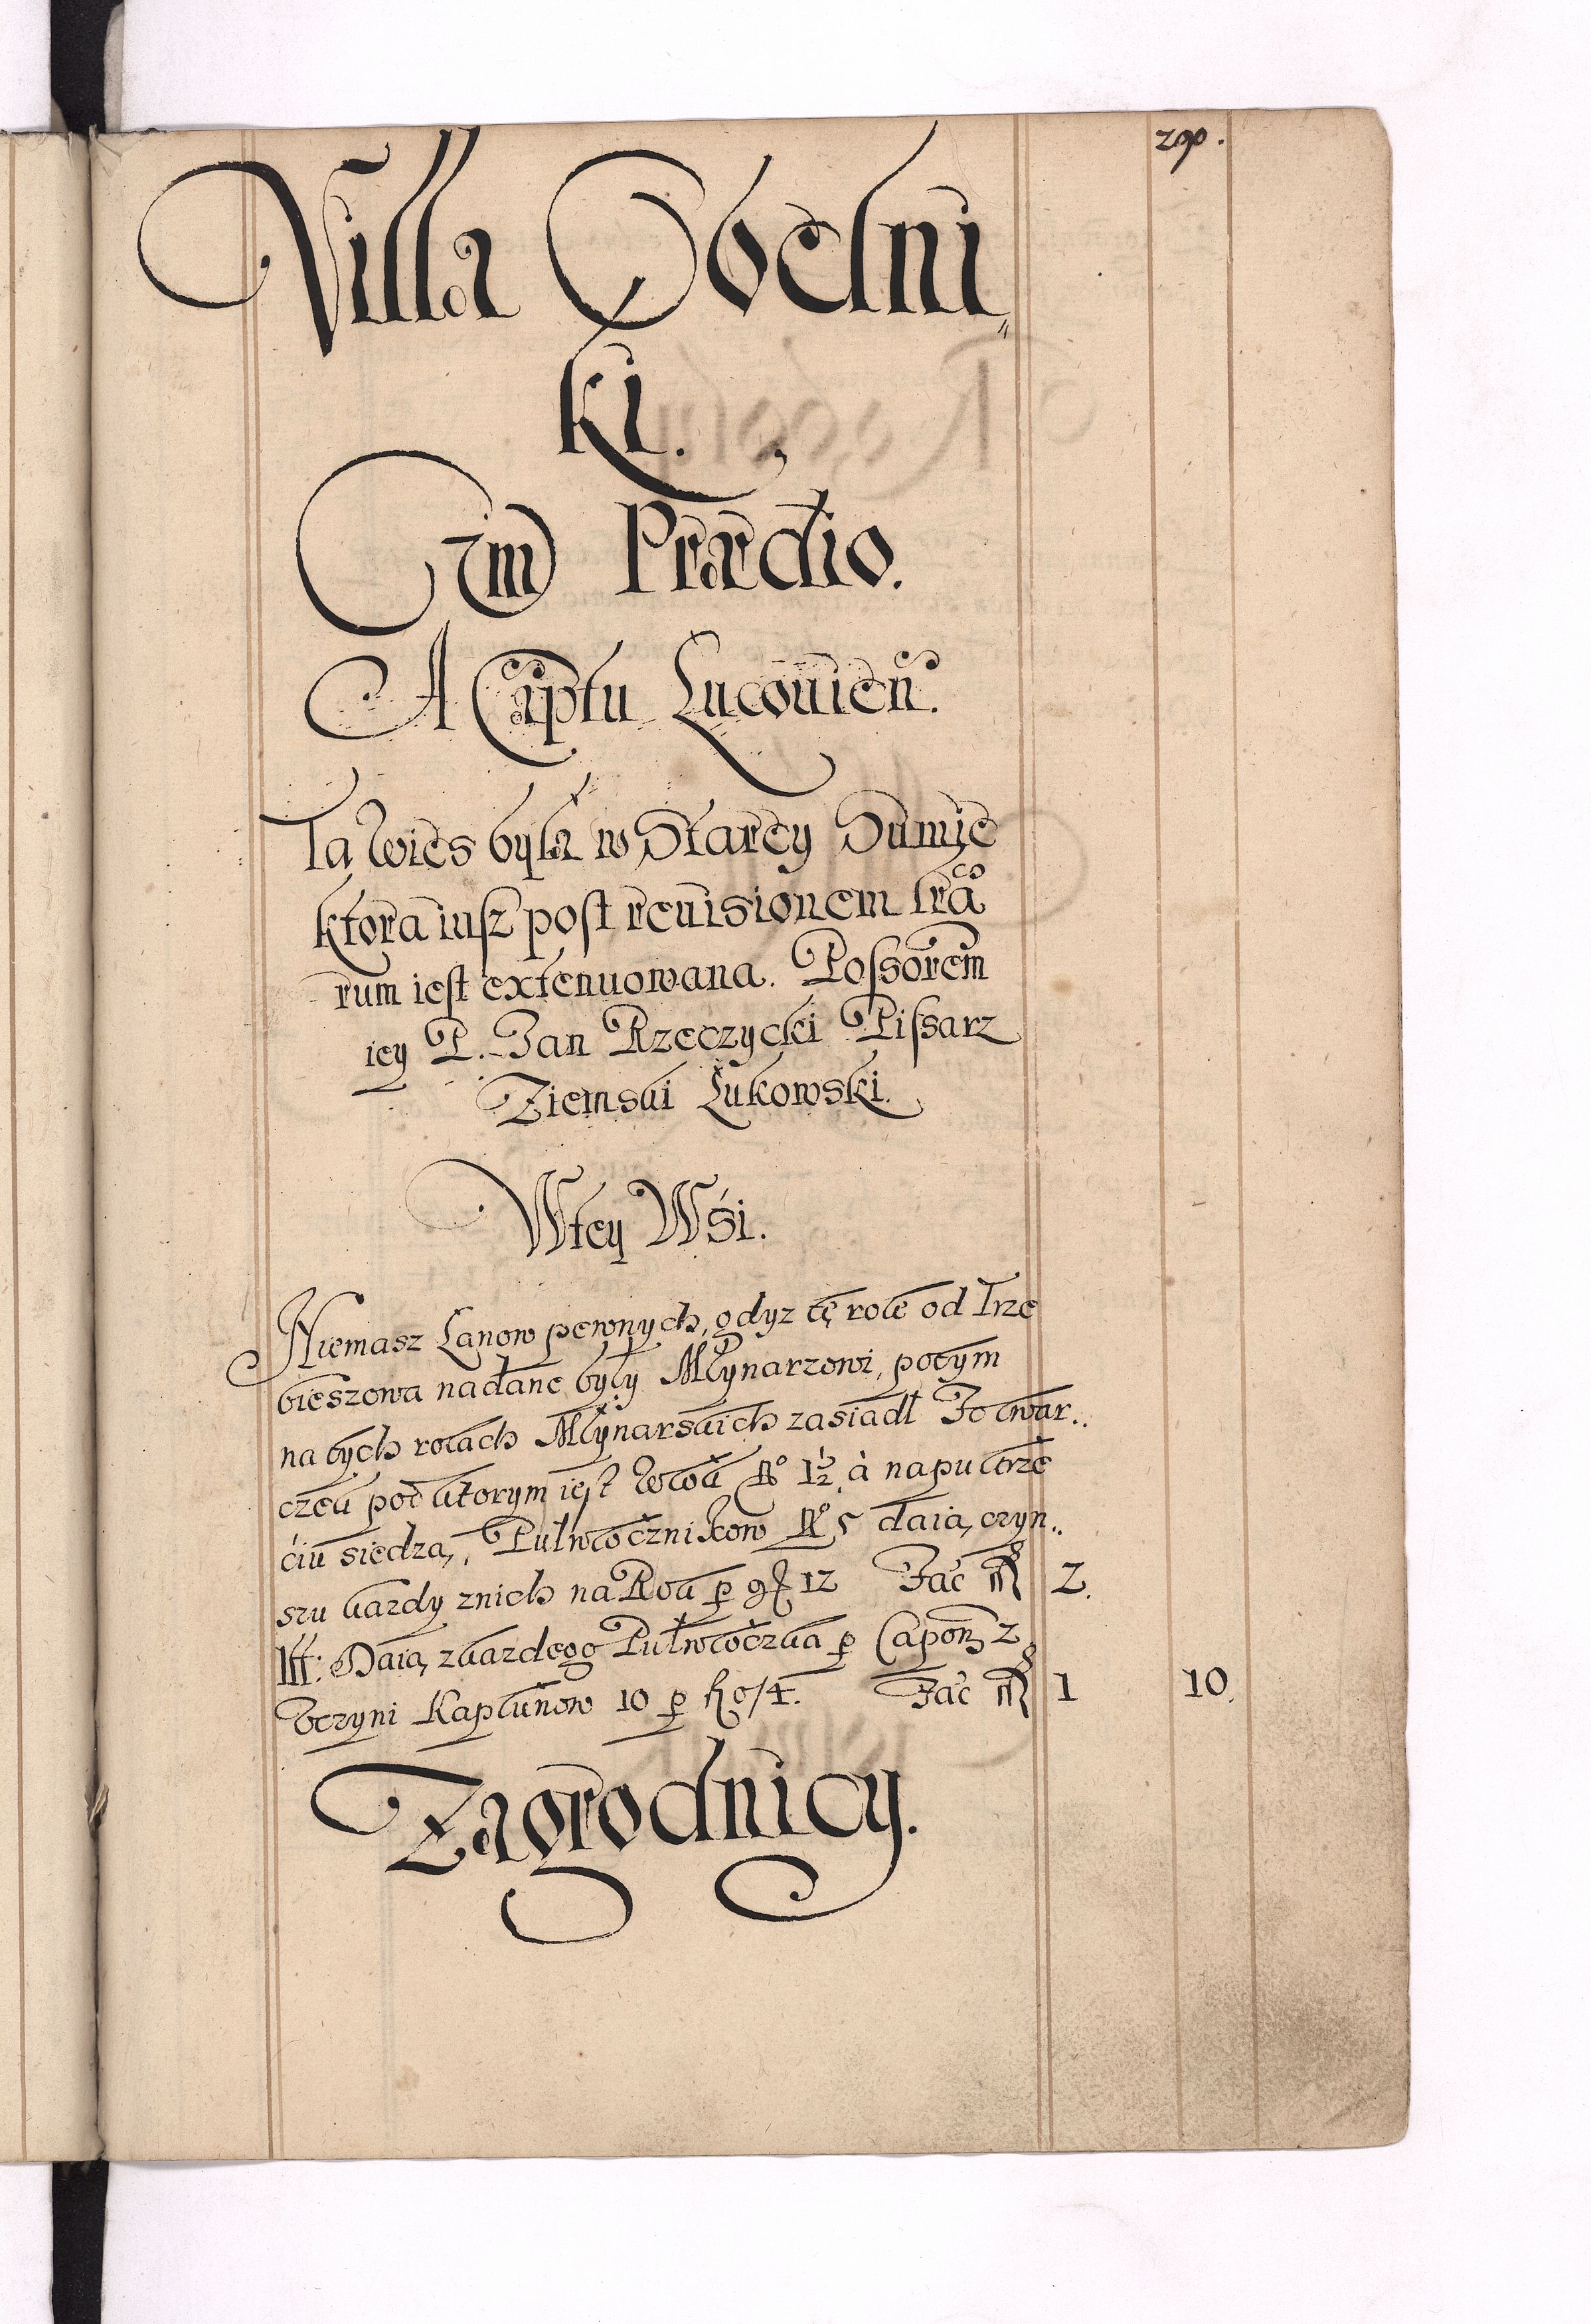 290.
Villa Obelni„
ki.
Cum Prædio.
A Captu Lucouien̄.
Ta Wies była w Starey Sumie
ktora iusz post reuisionem lrã
rum iest extenuowana. Possorem
iey P. Jan Rzeczycki Pissarz
Ziemski Łukowski.
Wtey Wśi.
Niemasz Łanow pewnych, gdyz tę role od Trze
bieszowa nadane były Młynarzowi, potym
na tych rolach Młynarskich zasiadł Folwar..
czek pod ktorym iest Włok No 1½ à napułtrze
ćiu siedzą, Pułwłocznikow No 5 daią czyn..
szu kazdy znich na Rok p gr 12 Fac 2.
Itt: Daią zkazdego Pułwłoczka p Capon 2
Vczyni Kapłunow 10 p gr /4. Fac 1 10.
Zagrodnicy.